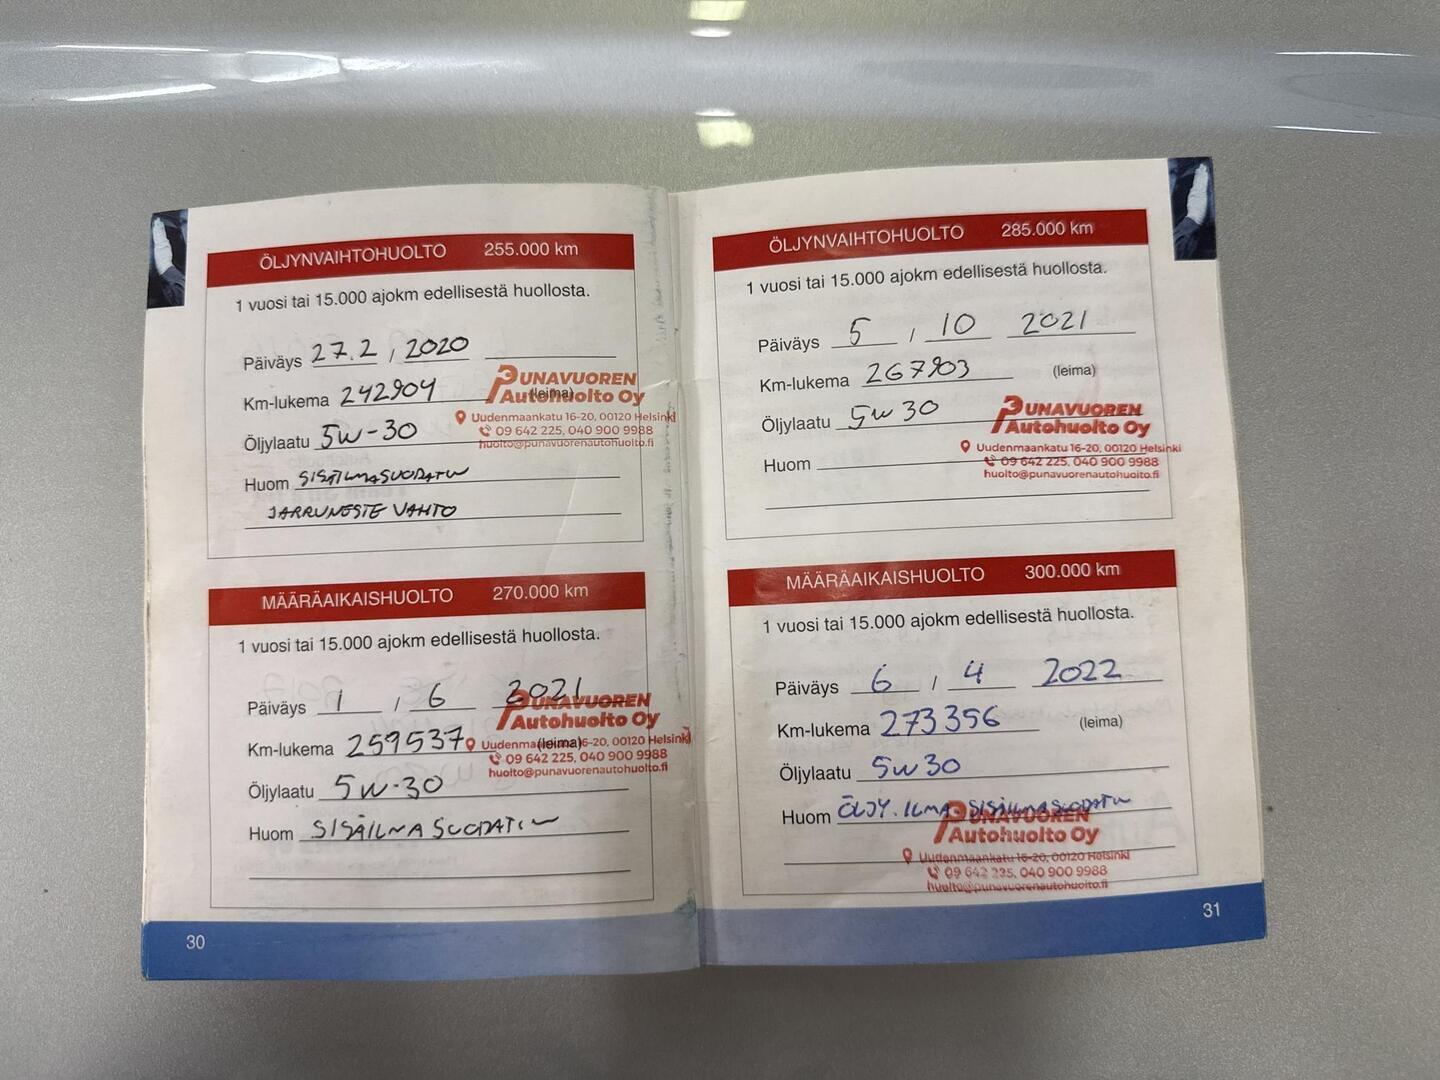 ÖLJYNVAIHTOHUOLTO 255.000 km
1 vuosi tai 15.000 ajokm edellisestä huollosta.
Päiväys 27.2 , 2020
Km-lukema 242904 (leima)
Öljylaatu 5W-30
Huom SISÄILMASUODATIN
JARRUNESTE VAHTO
PUNAVUOREN
Autohuolto Oy
Uudenmaankatu 16-20, 00120 Helsinki
09 642 225, 040 900 9988
huolto@punavuorenautohuolto.fi
MÄÄRÄAIKAISHUOLTO 270.000 km
1 vuosi tai 15.000 ajokm edellisestä huollosta.
Päiväys 1 , 6 2021
Km-lukema 259537 (leima)
Öljylaatu 5W-30
Huom SISÄILMASUODATIN
PUNAVUOREN
Autohuolto Oy
Uudenmaankatu 16-20, 00120 Helsinki
09 642 225, 040 900 9988
huolto@punavuorenautohuolto.fi
30
ÖLJYNVAIHTOHUOLTO 285.000 km
1 vuosi tai 15.000 ajokm edellisestä huollosta.
Päiväys 5 / 10 2021
Km-lukema 267903 (leima)
Öljylaatu 5W30
Huom
PUNAVUOREN
Autohuolto Oy
Uudenmaankatu 16-20, 00120 Helsinki
09 642 225, 040 900 9988
huolto@punavuorenautohuolto.fi
MÄÄRÄAIKAISHUOLTO 300.000 km
1 vuosi tai 15.000 ajokm edellisestä huollosta.
Päiväys 6 / 4 2022
Km-lukema 273356 (leima)
Öljylaatu 5W30
Huom ÖLJY. ILMA. SISÄILMASUODATIN
PUNAVUOREN
Autohuolto Oy
Uudenmaankatu 16-20, 00120 Helsinki
09 642 235, 040 900 9988
huolto@punavuorenautohuolto.fi
31